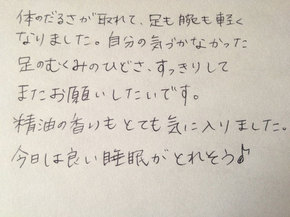 体のだるさが取れて、足も腕も軽く
なりました。自分の気づかなかった
足のむくみのひどさ、すっきりして
またお願いしたいです。
精油の香りもとても気に入りました。
今日は良い睡眠がとれそう♪